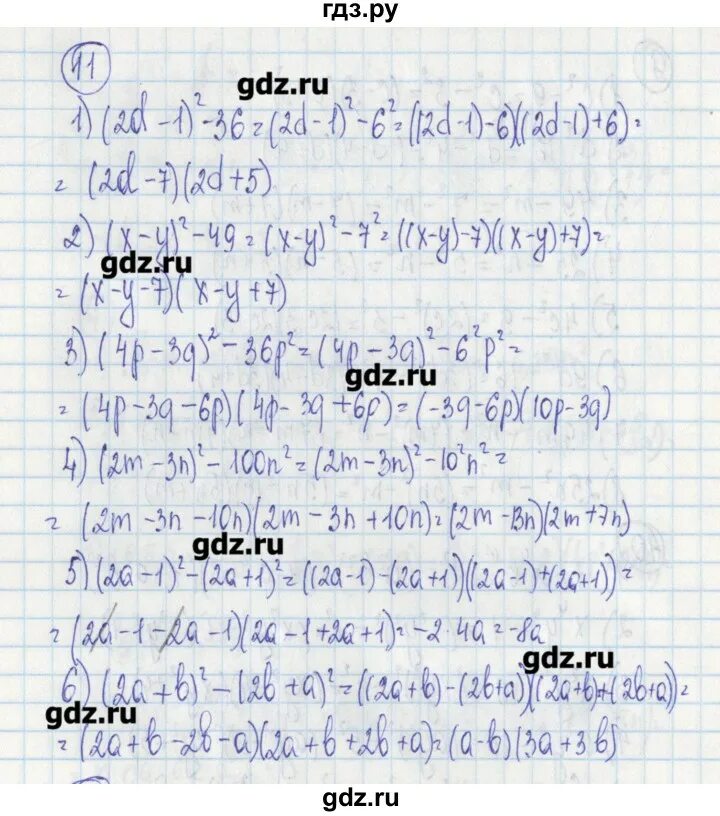 гдз.ру
11
gdz.ru
1) (2d - 1)² - 36 = (2d - 1)² - 6² = ((2d-1)-6)((2d-1)+6) =
= (2d - 7)(2d + 5)
2) (x - y)² - 49 = (x - y)² - 7² = ((x-y)-7)((x-y)+7) =
gdz.ru
= (x - y - 7)(x - y + 7)
3) (4p - 3q)² - 36p² = (4p - 3q)² - 6²p² =
gdz.ru
= (4p - 3q - 6p)(4p - 3q + 6p) = (-3q - 6p)(10p - 3q)
4) (2m - 3n)² - 100n² = (2m - 3n)² - 10²n² =
= (2m - 3n - 10n)(2m - 3n + 10n) = (2m - 13n)(2m + 7n)
gdz.ru
5) (2a - 1)² - (2a + 1)² = ((2a-1) - (2a+1))((2a-1) + (2a+1)) =
= (2a - 1 - 2a - 1)(2a - 1 + 2a + 1) = -2·4a = -8a
gdz.ru
6) (2a + b)² - (2b + a)² = ((2a+b) - (2b+a))((2a+b)+(2b+a)) =
gdz.ru
= (2a + b - 2b - a)(2a + b + 2b + a) = (a - b)(3a + 3b)
gdz.ru